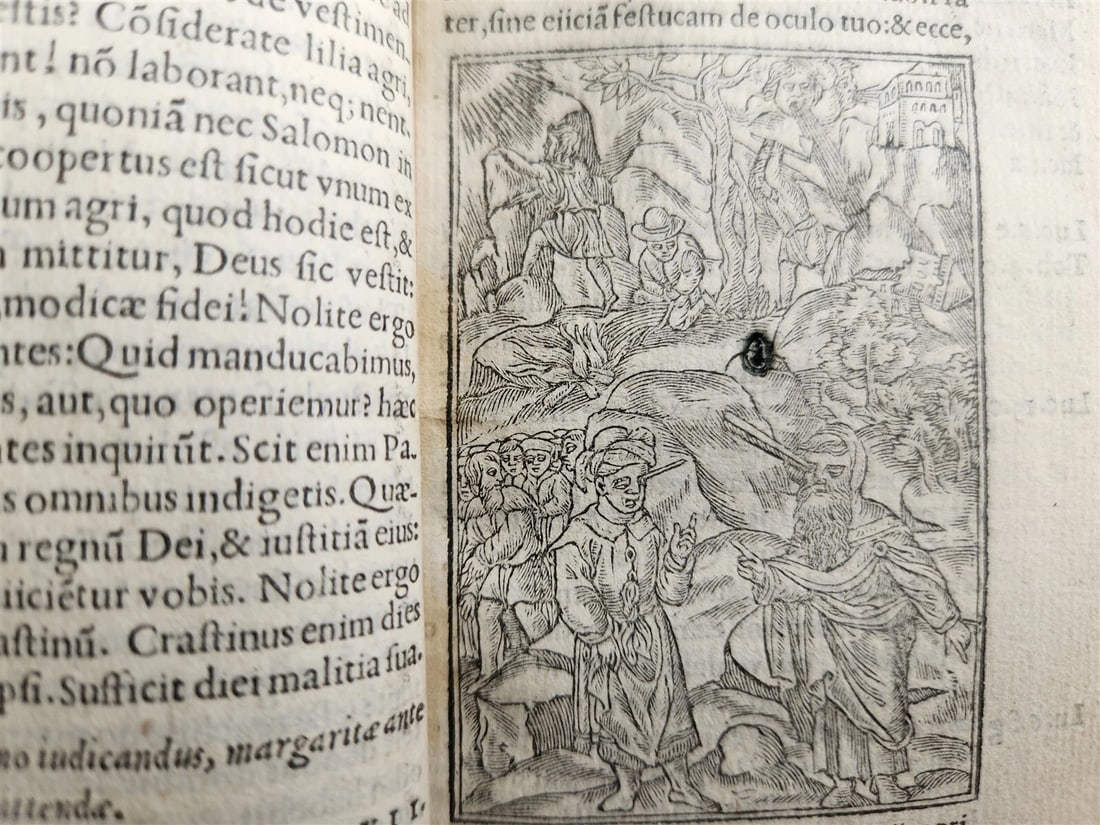 veſtimen-
eſtis? Cõſiderate lilia agri,
nt! nõ laborant, neq; nent.
is, quoniã nec Salomon in
coopertus eſt ſicut vnum ex
um agri, quod hodie eſt, &
mittitur, Deus ſic veſtit:
modicæ fidei! Nolite ergo
ntes: Quid manducabimus,
s, aut, quo operiemur? hæc
ntes inquirũt. Scit enim Pa-
s omnibus indigetis. Quæ-
regnũ Dei, & iuſtitiã eius:
iiciẽtur vobis. Nolite ergo
aſtinũ. Craſtinus enim dies
pſi. Sufficit diei malitia ſua.
no iudicandus, margaritæ ante
ittendæ.
ter, ſine eiiciã feſtucam de oculo tuo: & ecce,